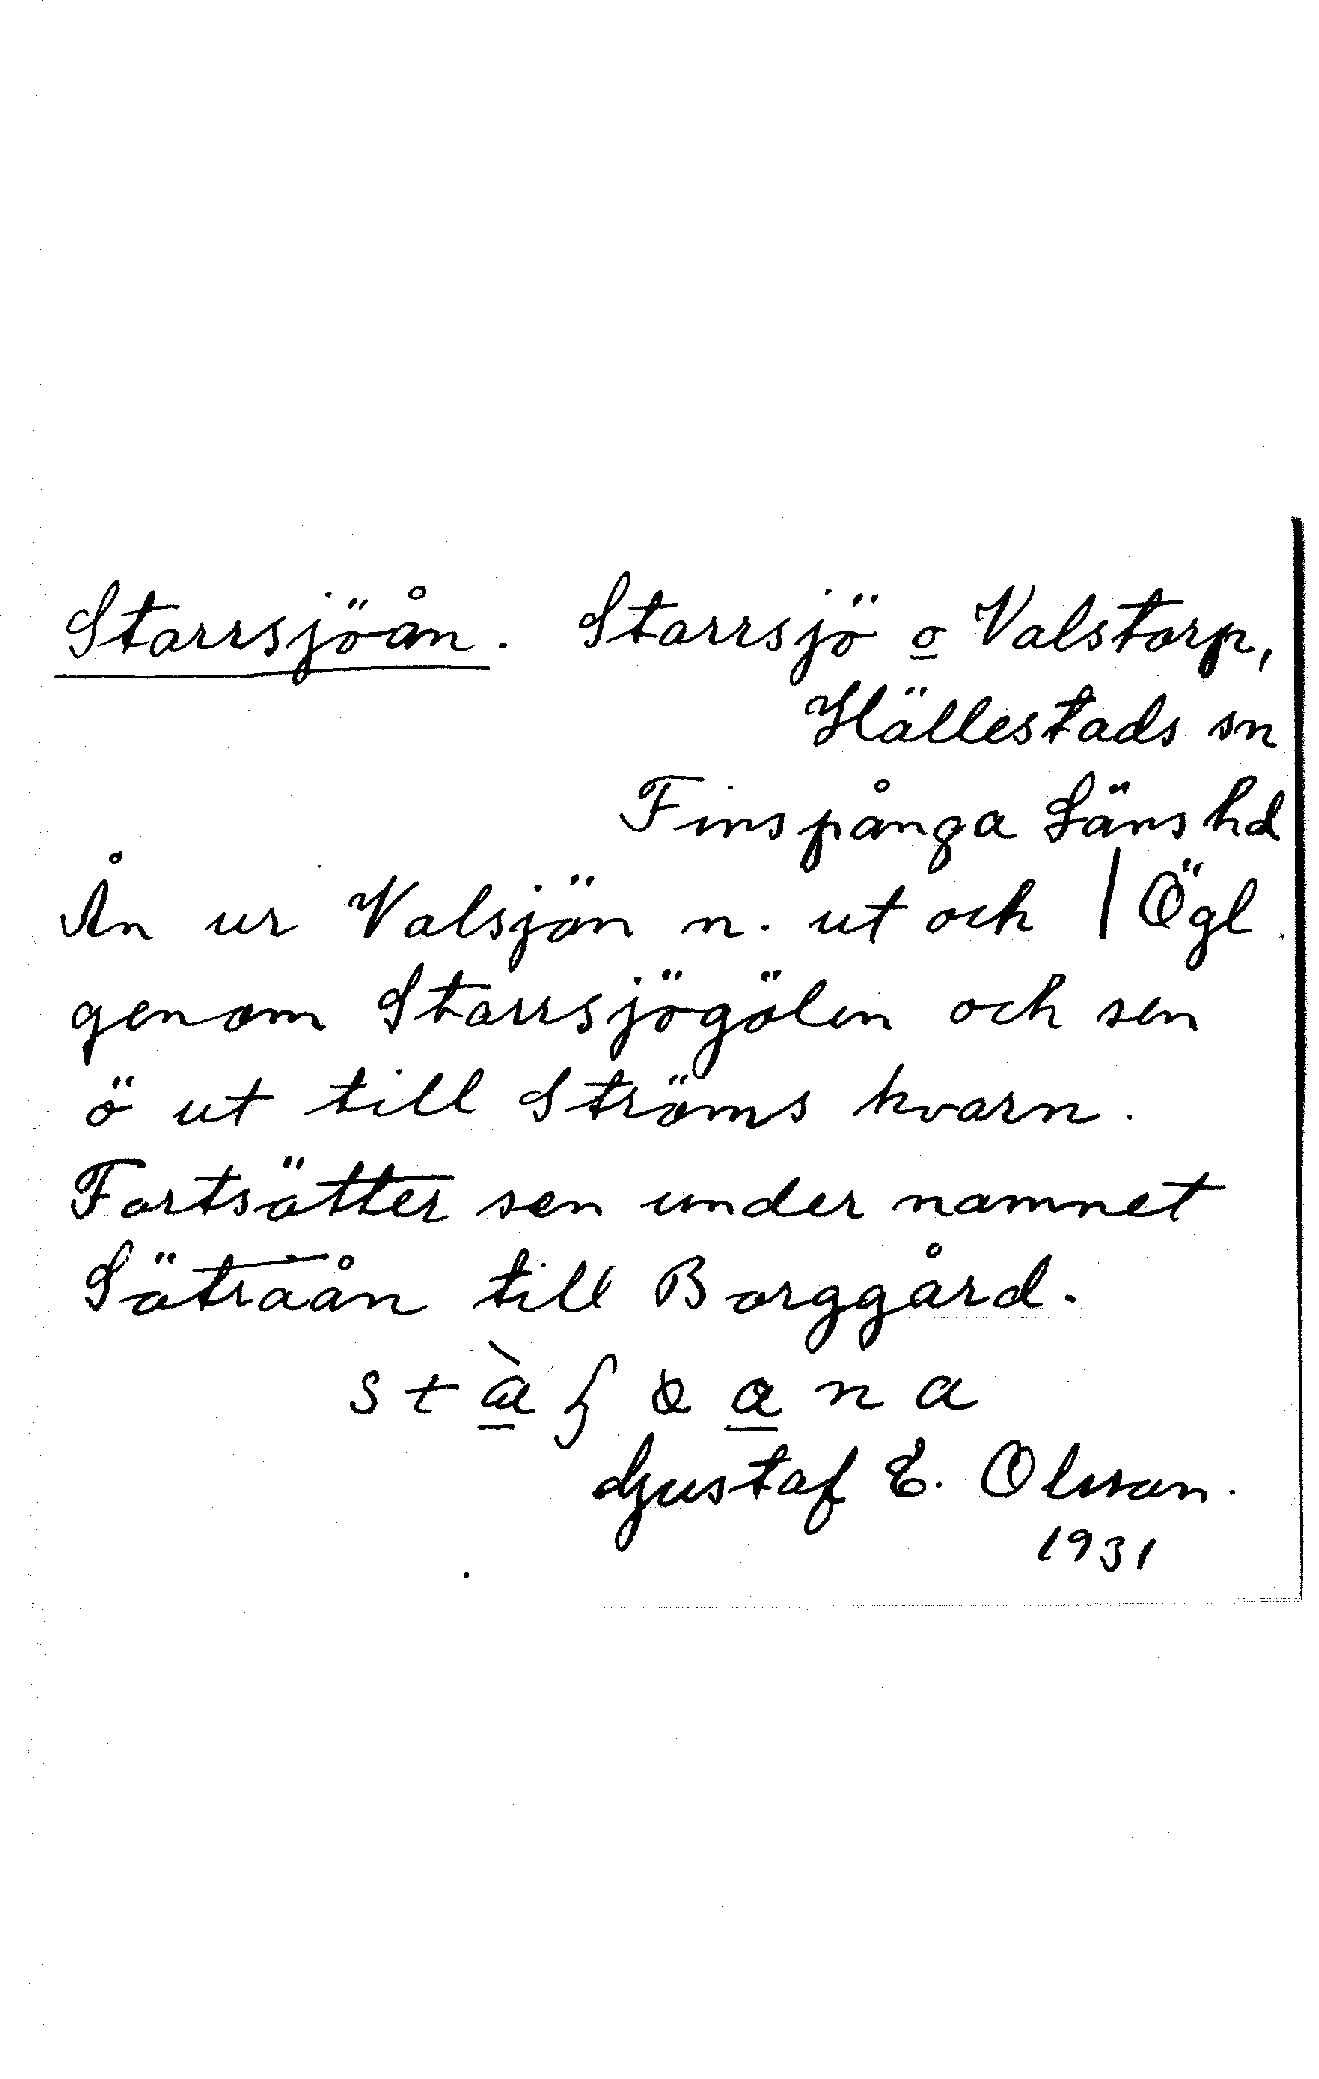 Starrsjöån. Starrsjö o Valstorp,
Hällestads sn
Finspånga Länshd
Ån ur Valsjön n. ut och | Ögl.
genom Starrsjögölen och sen
ö ut till Ströms kvarn.
Fortsätter sen under namnet
Sätraån till Borggård.
Gustaf E. Olsson.
1931